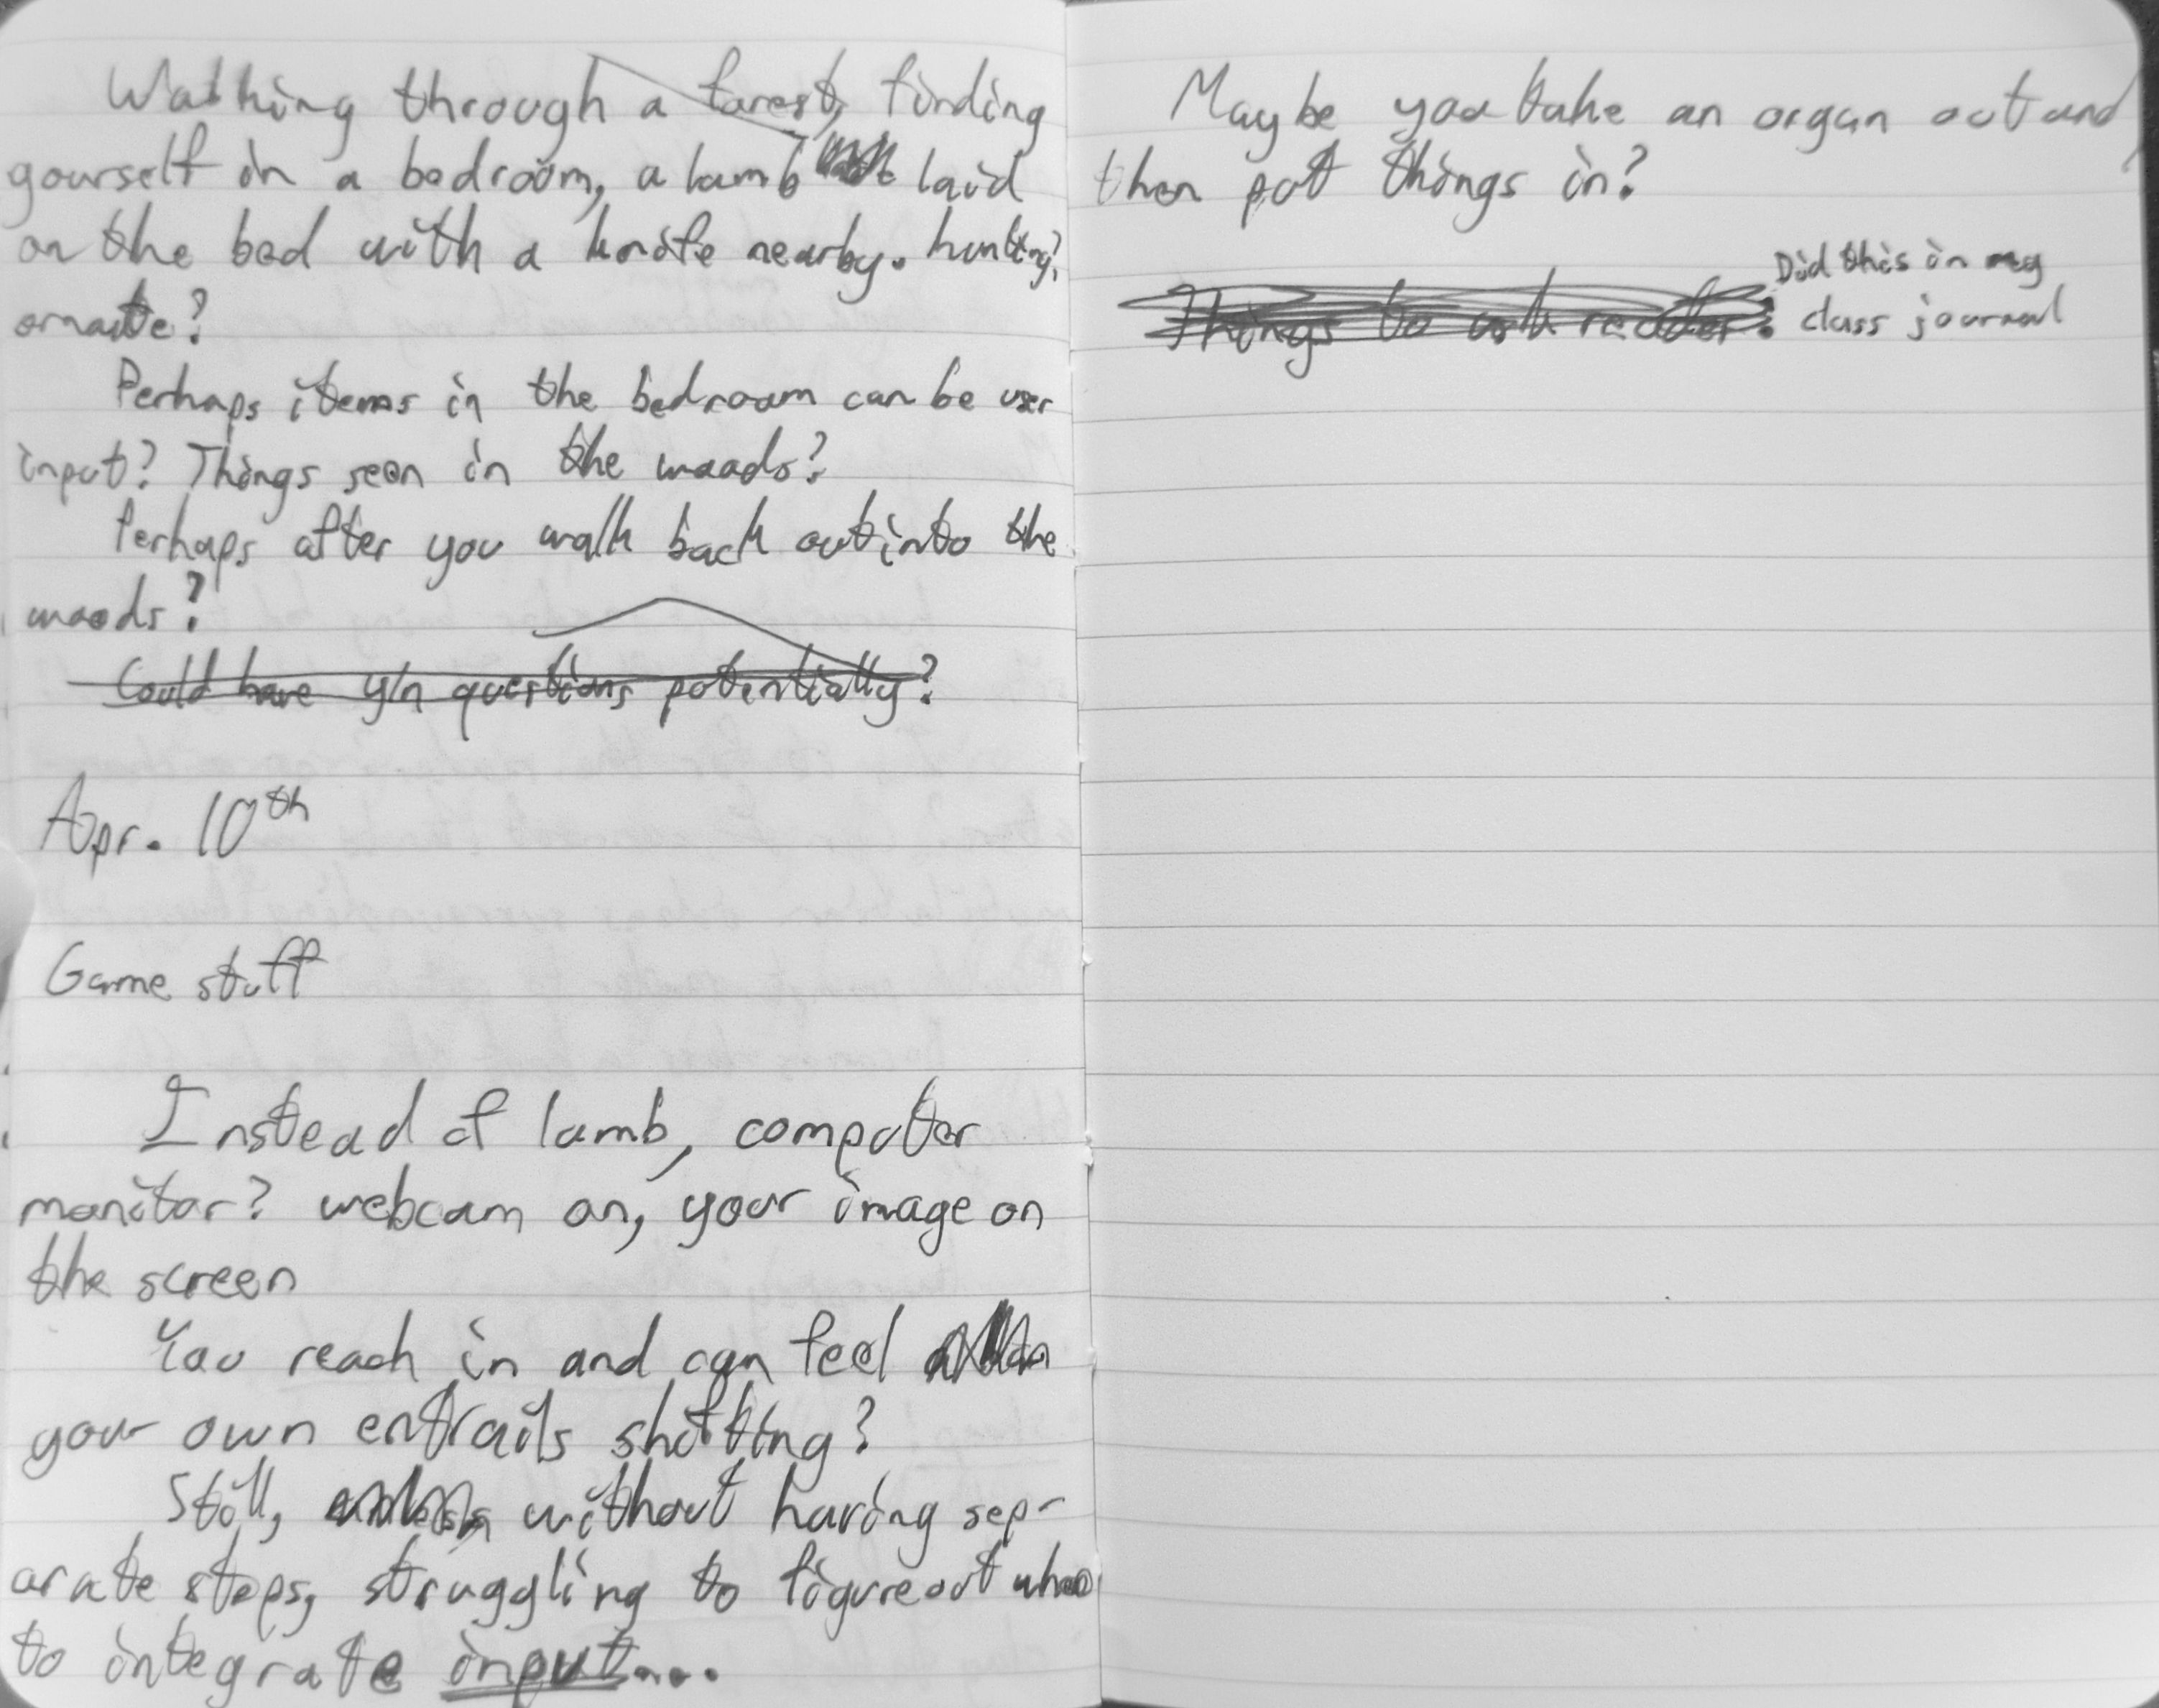 Walking through a forest, finding
yourself in a bedroom, a lamb laid
on the bed with a knife nearby. hunting?
ornate?
Perhaps items in the bedroom can be user
input? Things seen in the woods?
Perhaps after you walk back out into the
woods?
Could have y/n questions potentially?
Apr. 10th
Game stuff
Instead of lamb, computer
monitor? webcam on, your image on
the screen
You reach in and can feel
your own entrails shifting?
Still, without having sep-
arate steps, struggling to figure out
to integrate input...
Maybe you take an organ out and
then put things in?
Did this in my
Things to ask reader: class journal